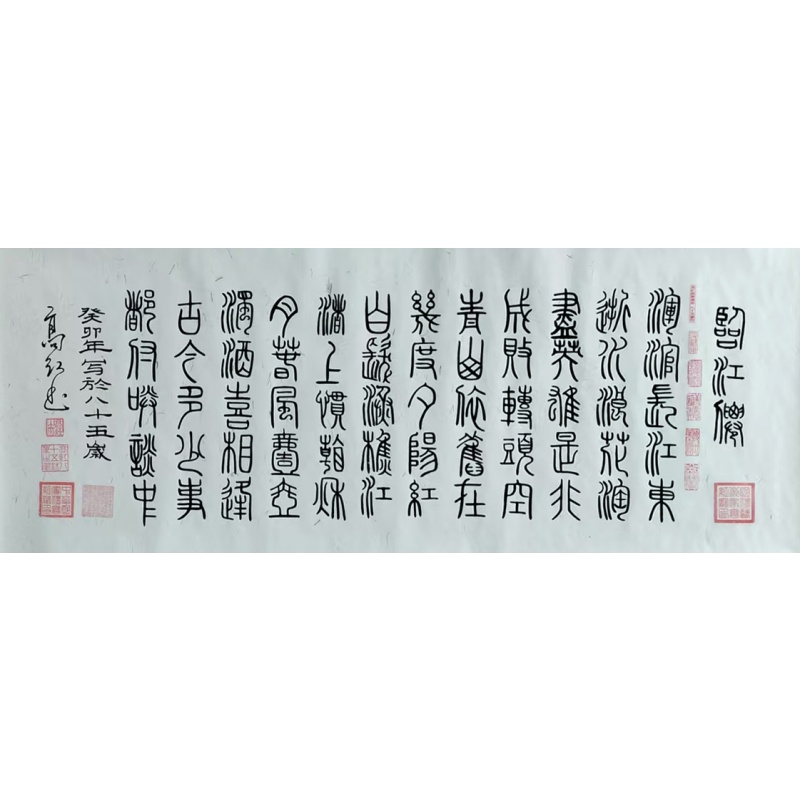 臨江僊
滾滾長江東
逝水浪花淘
盡英雄是非
成敗轉頭空
青山依舊在
幾度夕陽紅
白髮漁樵江
渚上慣看秋
月春風壹壺
濁酒喜相逢
古今多少事
都付笑談中
癸卯年写於八十五歲
高